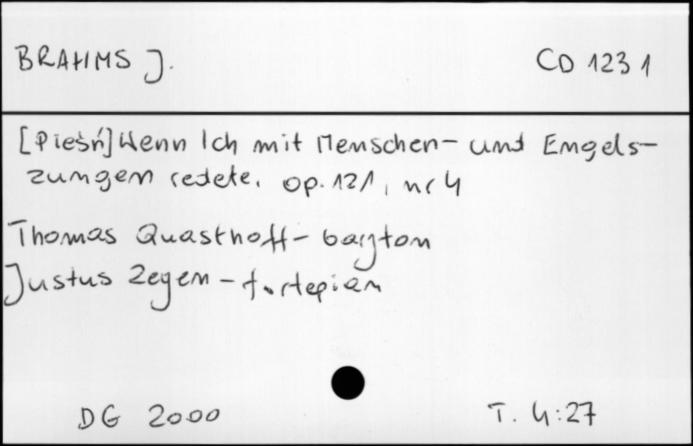 BRAHMS J. CD 1231
[Pieśń] Wenn Ich mit Menschen- und Engels-
zungen redete. op. 121, nr 4
Thomas Quasthoff - baryton
Justus Zeyen - fortepian
DG 2000 T. 4:27